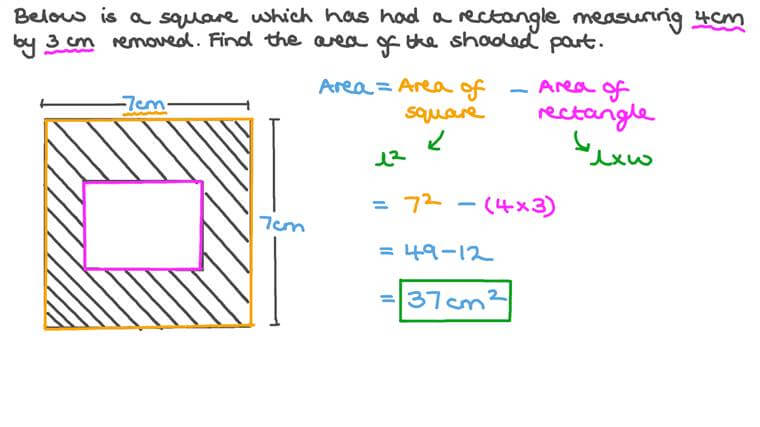 Below is a square which has had a rectangle measuring 4cm
by 3 cm removed. Find the area of the shaded part.
Area = Area of square - Area of rectangle
l² l×w
7cm
7cm
= 7² - (4×3)
= 49-12
= 37cm²